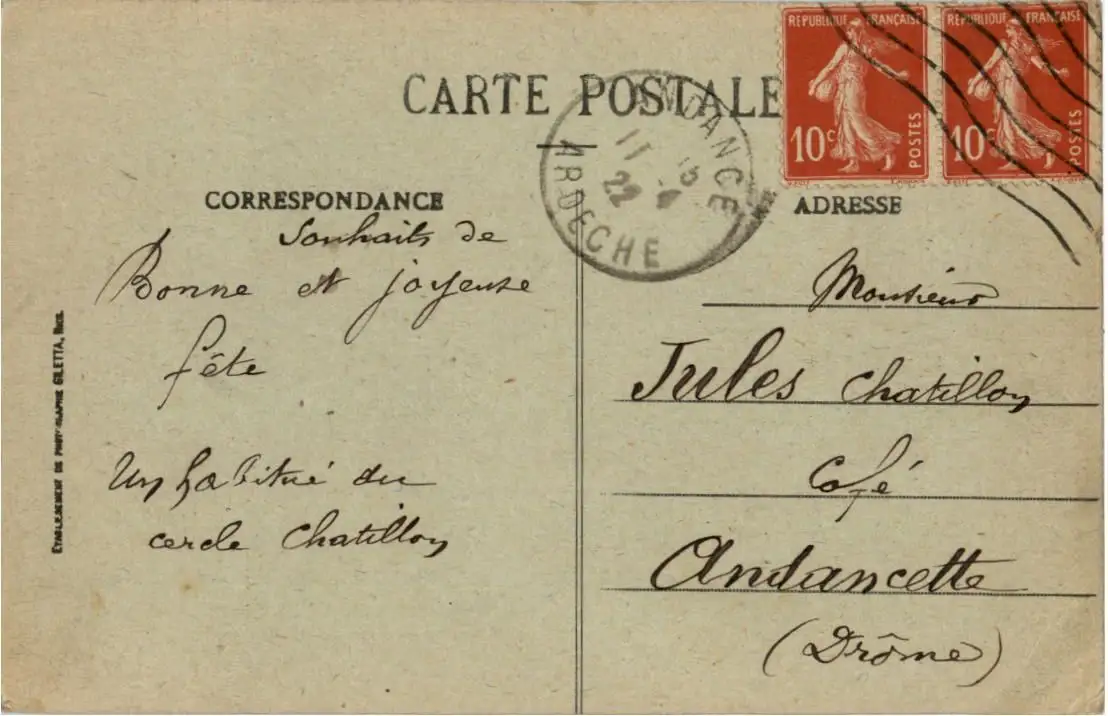 RÉPUBLIQUE FRANÇAISE
10c
POSTES
RÉPUBLIQUE FRANÇAISE
10c
POSTES
CARTE POSTALE
ANDANCE
11
22
ARDECHE
CORRESPONDANCE
Souhaits de
Bonne et joyeuse
fête
Un habitué du
cercle Chatillon
ADRESSE
Monsieur
Jules Chatillon
Café
Andancette
(Drôme)
ÉTABLISSEMENT DE PHOTOGRAPHIE GILETTA, NICE.